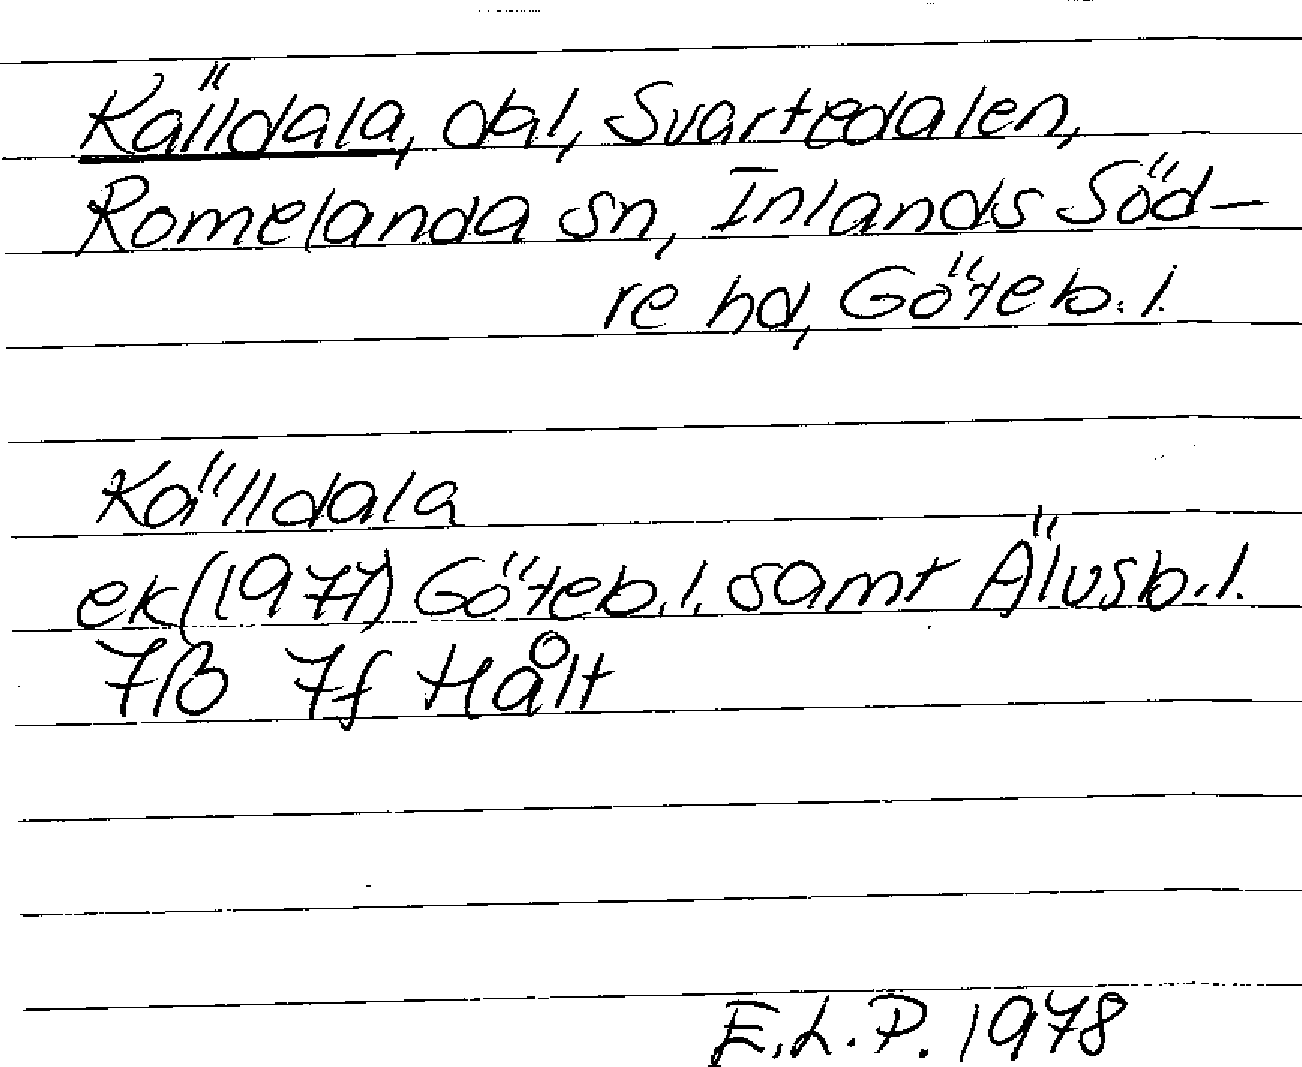 Källdala, dal, Svartedalen,
Romelanda sn, Inlands Söd-
re hd, Göteb.l.
Källdala
ek(1977) Göteb.l. samt Älvsb.l.
7B 7f Hålt
E.L.P. 1978